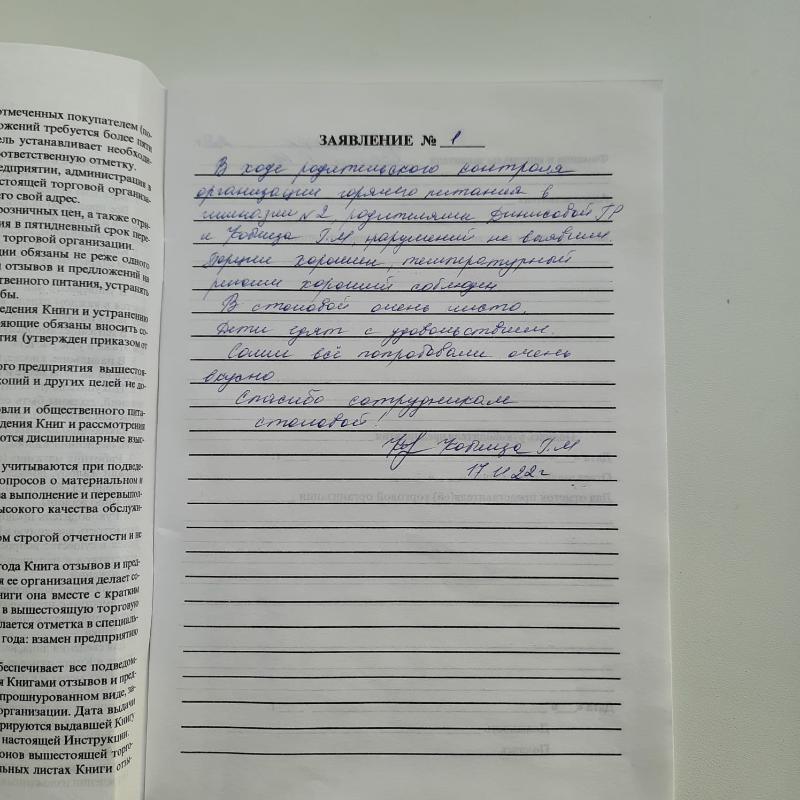 отмеченных покупателем (по-
ожений требуется более пяти
ель устанавливает необходи-
ответственную отметку.
едприятии, администрация в
стоящей торговой организа-
его свой адрес.
розничных цен, а также отри-
ия в пятидневный срок пере-
торговой организации.
ции обязаны не реже одного
и отзывов и предложений на
ственного питания, устранять
бы.
едения Книги и устранению
ряющие обязаны вносить со-
тия (утвержден приказом от
ого предприятия вышестоя-
копий и других целей не до-
овли и общественного пита-
едения Книг и рассмотрения
ются дисциплинарные взыс-
учитываются при подведе-
опросов о материальном и
за выполнение и перевыпол-
ысокого качества обслужи-
ом строгой отчетности и не
года Книга отзывов и пред-
я ее организация делает со-
ниги она вместе с кратким
в вышестоящую торговую
лается отметка в специаль-
года: взамен предприятию
беспечивает все подведом-
я Книгами отзывов и пред-
прошнурованном виде, за-
организации. Дата выдачи
рируются выдавшей Книгу
настоящей Инструкции.
онов вышестоящей торго-
льных листах Книги отзы-
ЗАЯВЛЕНИЕ № 1
В ходе родительского контроля
организации горячего питания в
гимназии №2, родителями Динисовой Г.Р
и Г.М, нарушений не выявлен.
Порции хорошие, температурный
режим хороший соблюден
В столовой очень чисто.
Дети едят с удовольствием.
Сами всё попробовали очень
вкусно
Спасибо сотрудникам
столовой!
Г.М
17.11.22г